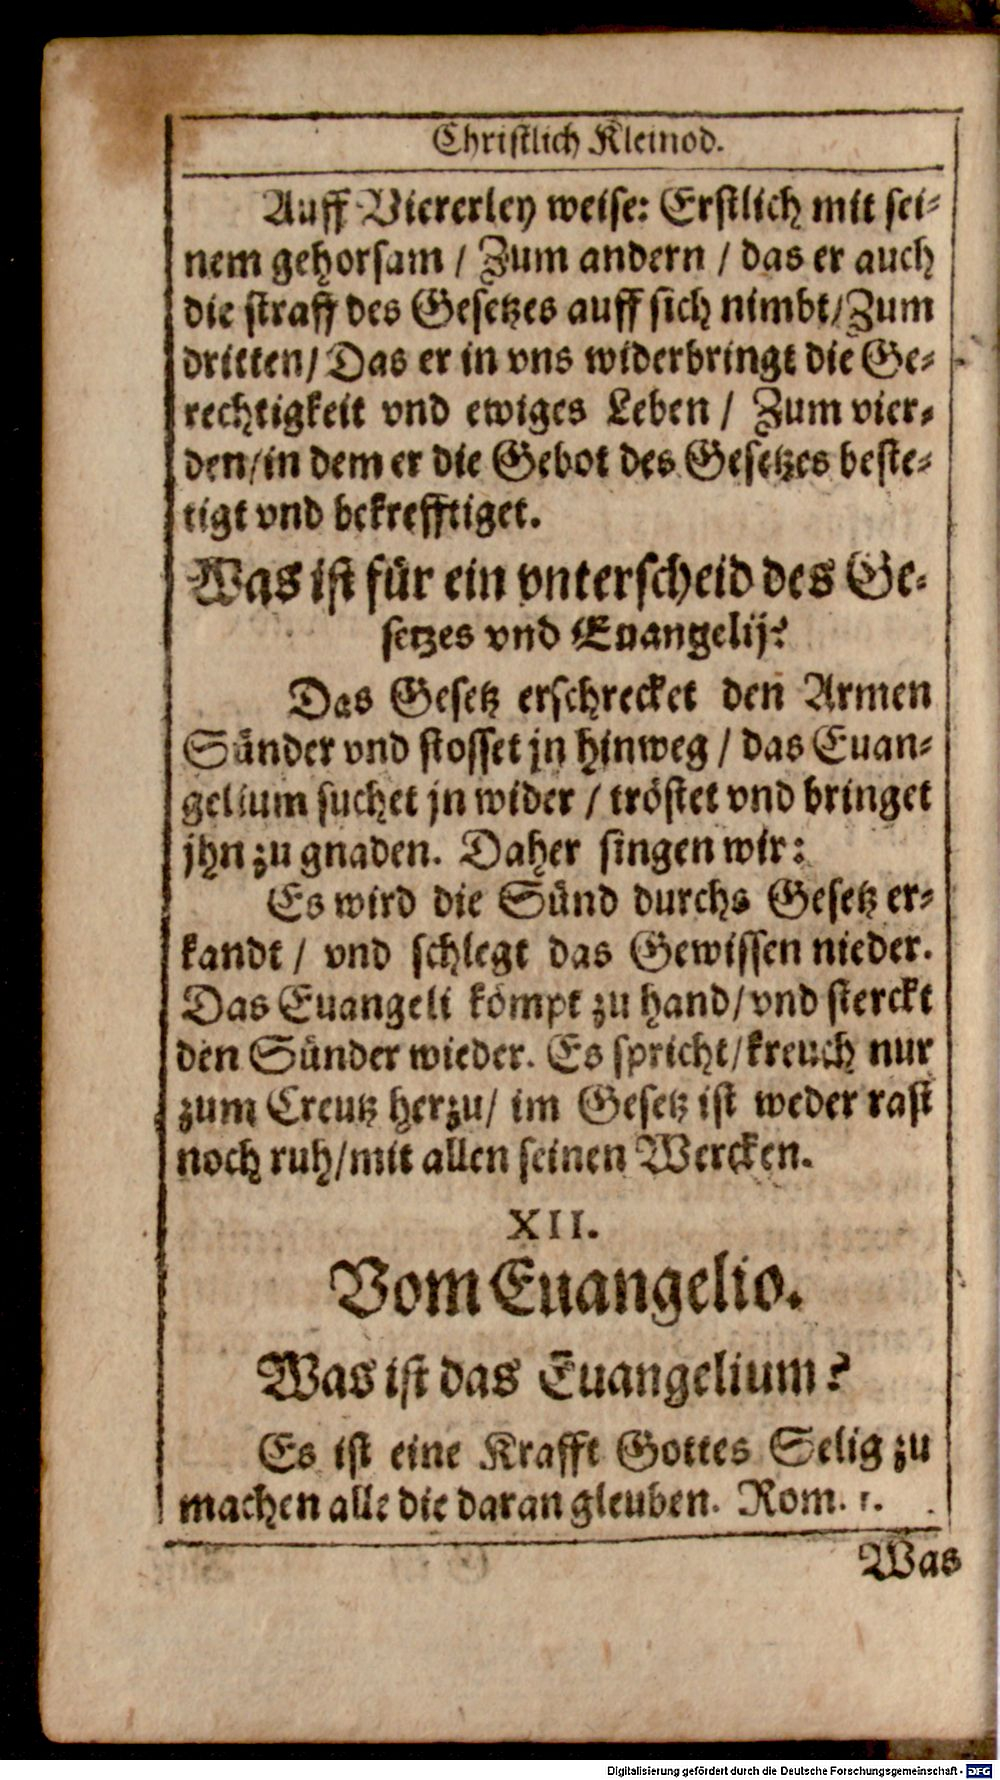 Christlich Kleinod.
Auff Viererley weise: Erstlich mit sei-
nem gehorsam / Zum andern / das er auch
die straff des Gesetzes auff sich nimbt / Zum
dritten / Das er in vns widerbringt die Ge-
rechtigkeit vnd ewiges Leben / Zum vier-
den / in dem er die Gebot des Gesetzes beste-
tigt vnd bekrefftiget.
Was ist für ein vnterscheid des Ge-
setzes vnd Euangelij?
Das Gesetz erschrecket den Armen
Sünder vnd stosset jn hinweg / das Euan-
gelium suchet jn wider / tröstet vnd bringet
jhn zu gnaden. Daher singen wir:
Es wird die Sünd durchs Gesetz er-
kandt / vnd schlegt das Gewissen nieder.
Das Euangeli kömpt zu hand / vnd sterckt
den Sünder wieder. Es spricht / kreuch nur
zum Creutz herzu / im Gesetz ist weder rast
noch ruh / mit allen seinen Wercken.
XII.
Vom Euangelio.
Was ist das Euangelium?
Es ist eine Krafft Gottes Selig zu
machen alle die daran gleuben. Rom. 1.
Was
Digitalisierung gefördert durch die Deutsche Forschungsgemeinschaft - DFG